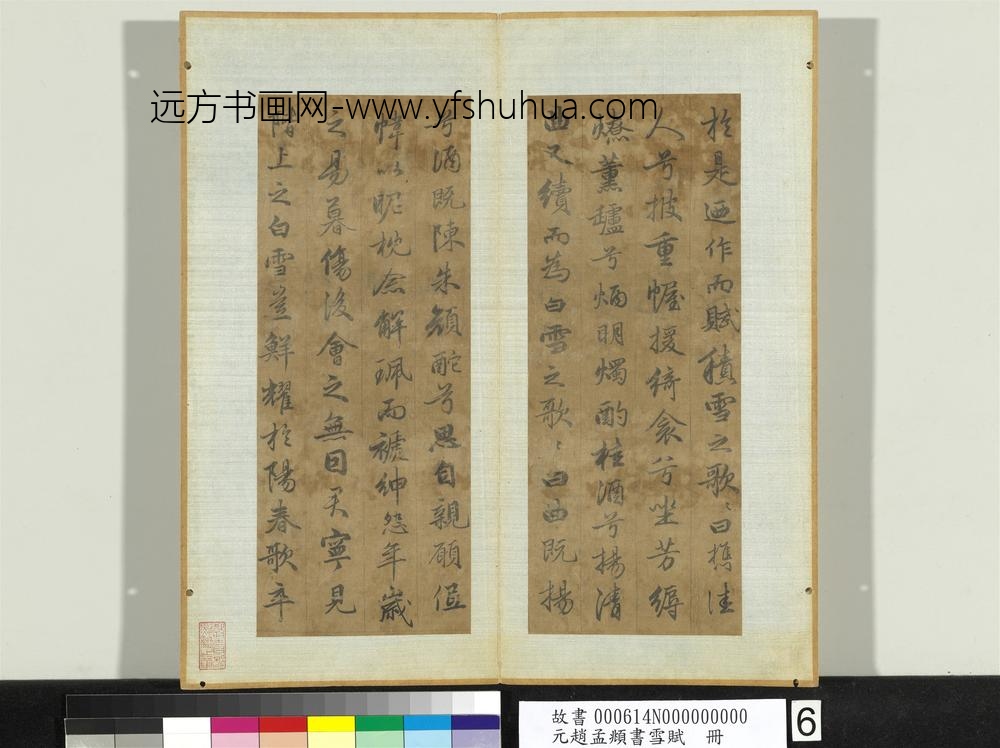 远方书画网-www.yfshuhua.com
於是迺作而賦積雪之歌〻曰攜佳
人兮披重幄援綺衾兮坐芳縟
燎薰鑪兮炳明燭酌桂酒兮揚清
曲又續而為白雪之歌〻曰曲既揚
兮酒既陳朱顏酡兮思自親願低
帷以昵枕念解珮而褫紳怨年歲
之易暮傷後會之無因君寧見
階上之白雪豈鮮耀於陽春歌卒
故書 000614N000000000
元趙孟頫書雪賦 冊
6